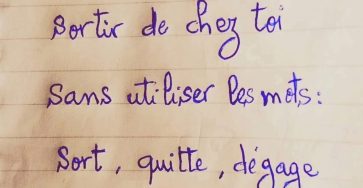 sortir de chez toi
sans utiliser les mots :
sort, quitte, dégage